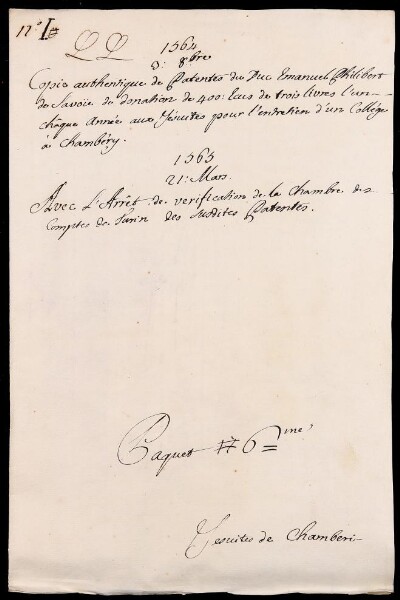 n.° I
Q Q 1564
3: 8bre
Copie authentique de Patentes du Duc Emanuel Philibert
de Savoie de donation de 400: Ecus de trois livres l'un
chaque Année aux Jésuites pour l'entretien d'un College
à Chambéry.
1565
21: Mars.
Avec L'Arrêt de verification de la Chambre des
Comptes de Turin des susdites Patentes.
Paquet # 6me
Jesuites de Chamberi